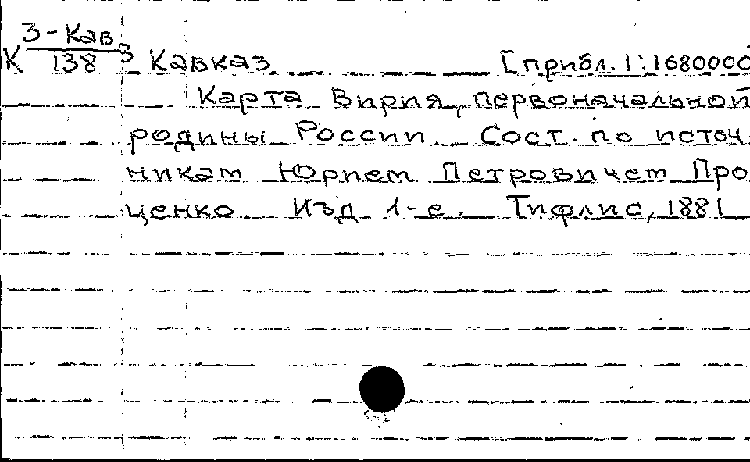 К 3-Кав/138 3 Кавказ [прибл. 1:1680000
Карта Вирия, первоначальной
родины России. Сост. по источ-
никам Юрием Петровичем Про
ценко Изд 1-е. Тифлис, 1881